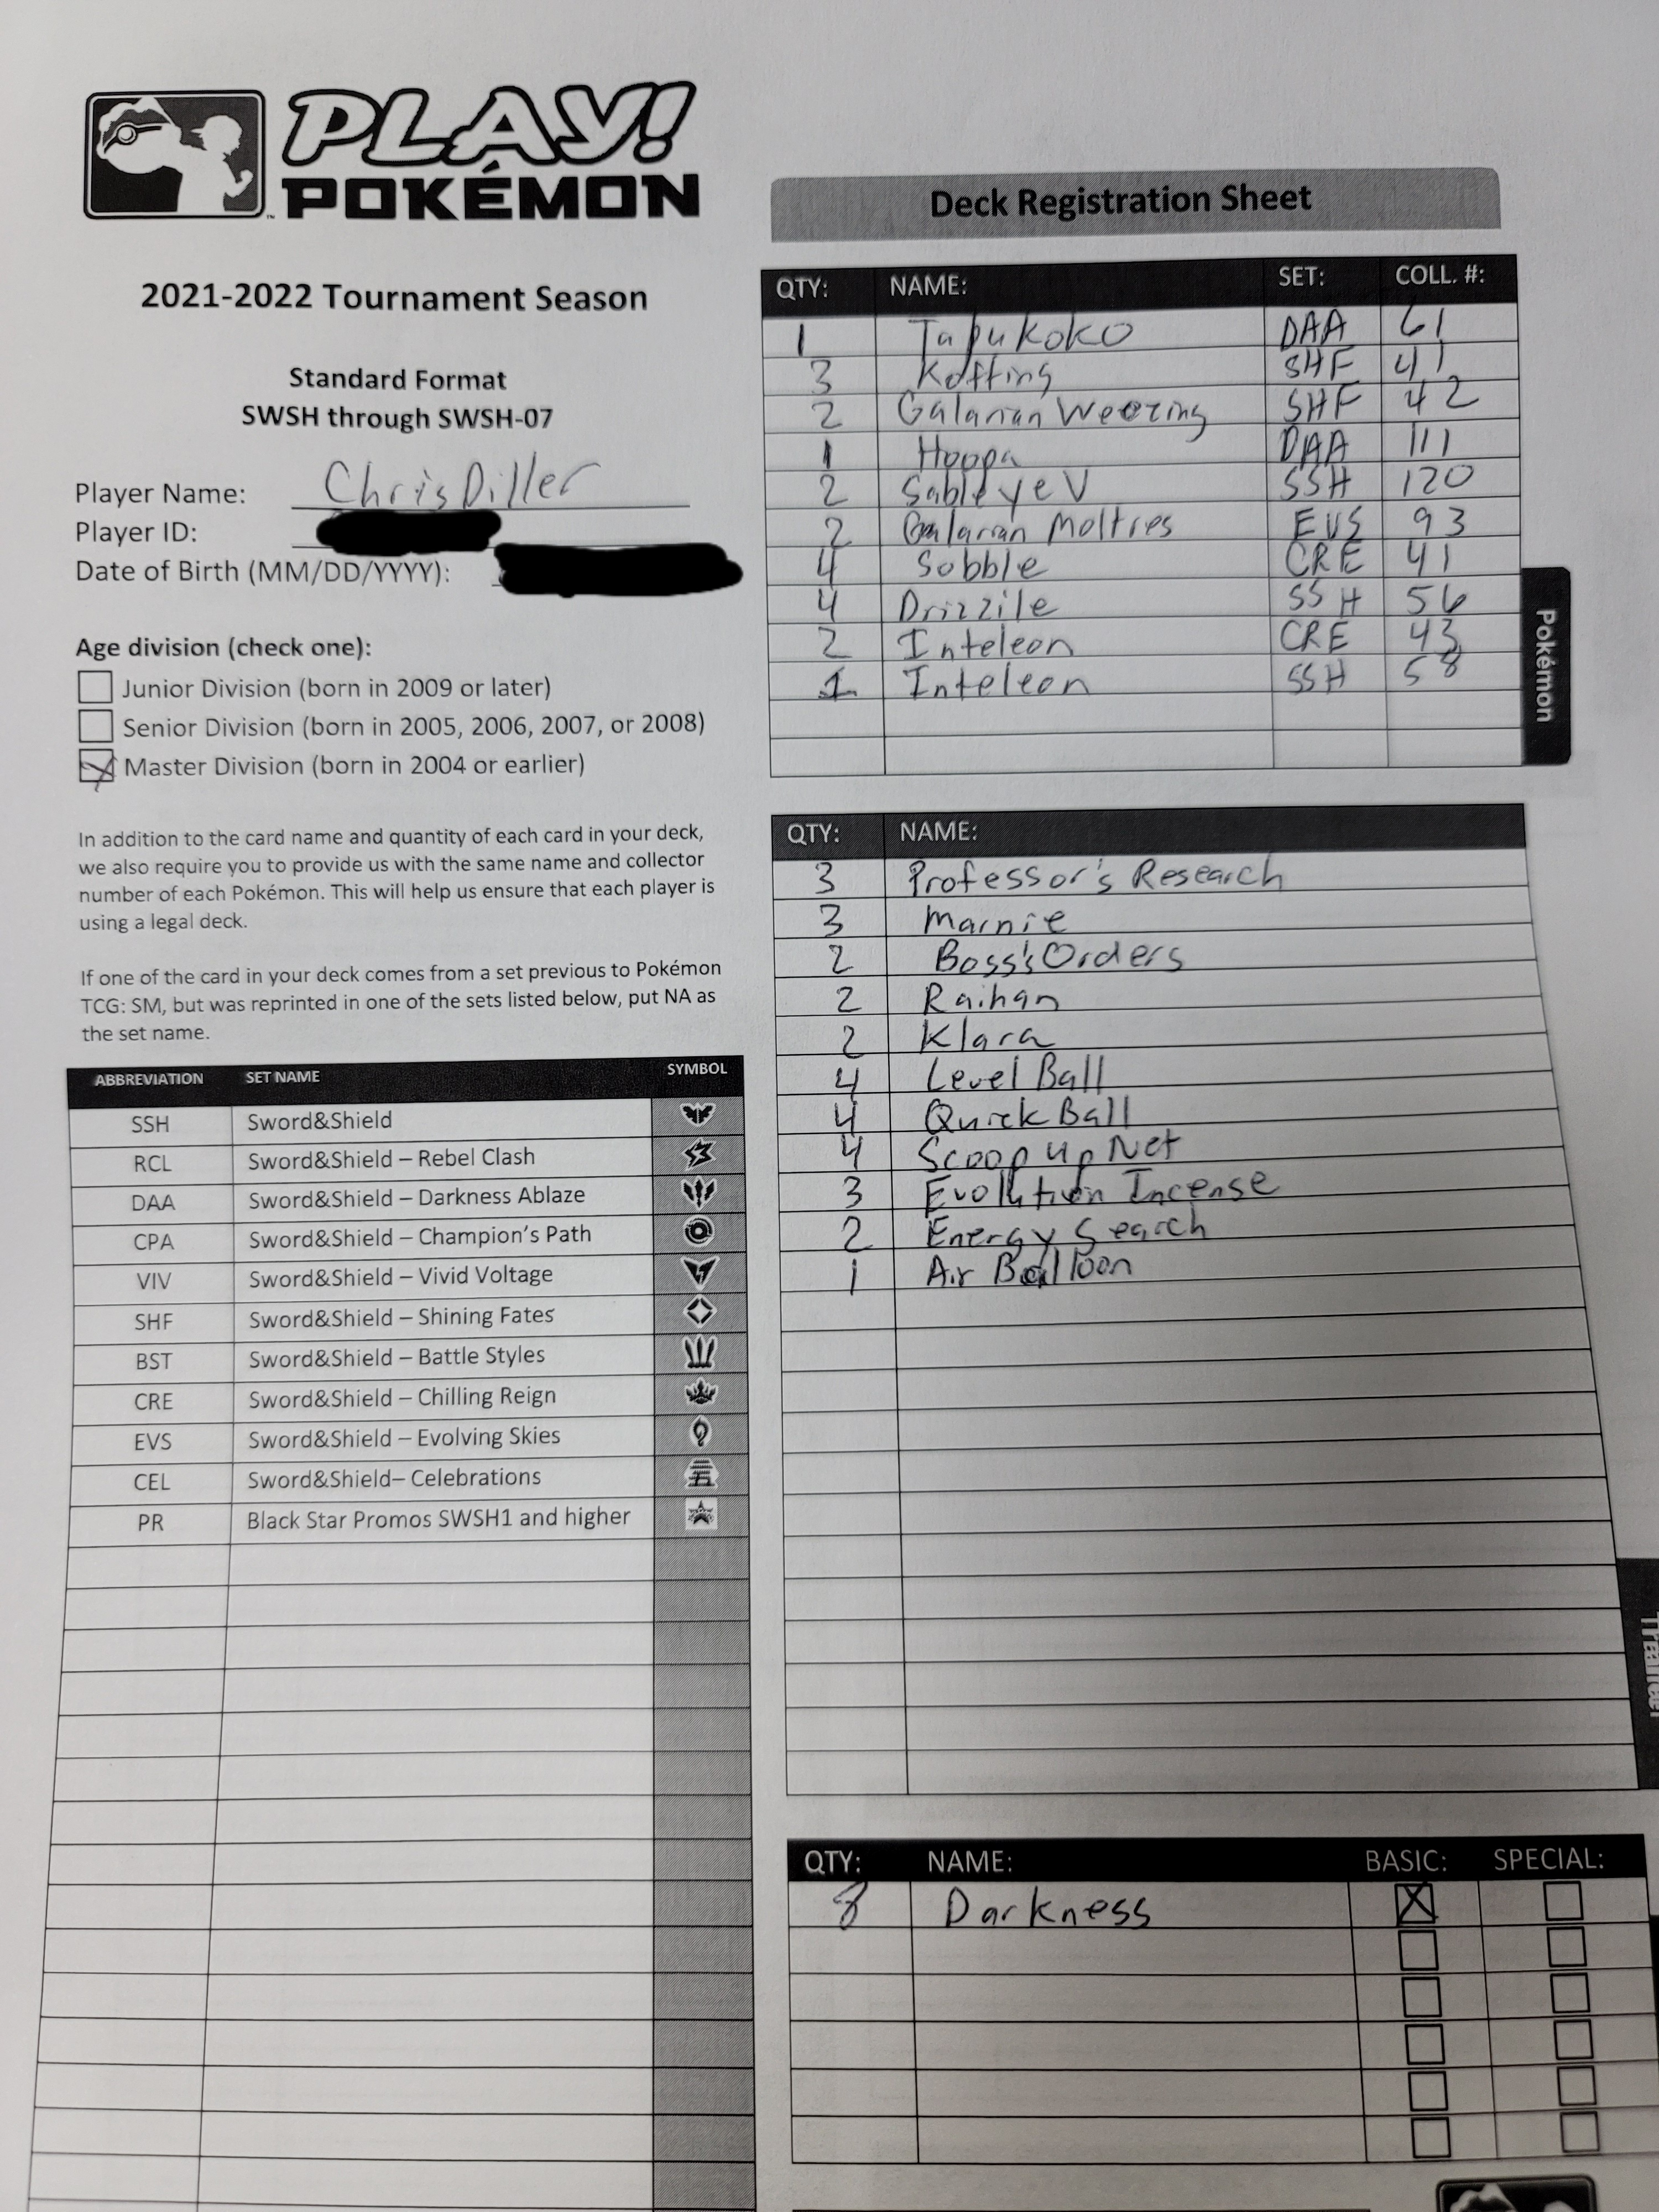 PLAY!
POKÉMON
Deck Registration Sheet
2021-2022 Tournament Season
Standard Format
SWSH through SWSH-07
Player Name: Chris Diller
Player ID:
Date of Birth (MM/DD/YYYY):
Age division (check one):
Junior Division (born in 2009 or later)
Senior Division (born in 2005, 2006, 2007, or 2008)
Master Division (born in 2004 or earlier)
In addition to the card name and quantity of each card in your deck,
we also require you to provide us with the same name and collector
number of each Pokémon. This will help us ensure that each player is
using a legal deck.
If one of the card in your deck comes from a set previous to Pokémon
TCG: SM, but was reprinted in one of the sets listed below, put NA as
the set name.
ABBREVIATION SET NAME SYMBOL
SSH Sword&Shield
RCL Sword&Shield – Rebel Clash
DAA Sword&Shield – Darkness Ablaze
CPA Sword&Shield – Champion's Path
VIV Sword&Shield – Vivid Voltage
SHF Sword&Shield – Shining Fates
BST Sword&Shield – Battle Styles
CRE Sword&Shield – Chilling Reign
EVS Sword&Shield – Evolving Skies
CEL Sword&Shield– Celebrations
PR Black Star Promos SWSH1 and higher
QTY: NAME: SET: COLL. #:
1 Tapu Koko DAA 61
3 Koffing SHF 41
2 Galarian Weezing SHF 42
1 Hoopa DAA 111
2 Sableye V SSH 120
2 Galarian Moltres EVS 93
4 Sobble CRE 41
4 Drizzile SSH 56
2 Inteleon CRE 43
1 Inteleon SSH 58
Pokémon
QTY: NAME:
3 Professor's Research
3 Marnie
2 Boss's Orders
2 Raihan
2 Klara
4 Level Ball
4 Quick Ball
4 Scoop Up Net
3 Evolution Incense
2 Energy Search
1 Air Balloon
Trainer
QTY: NAME: BASIC: SPECIAL:
8 Darkness